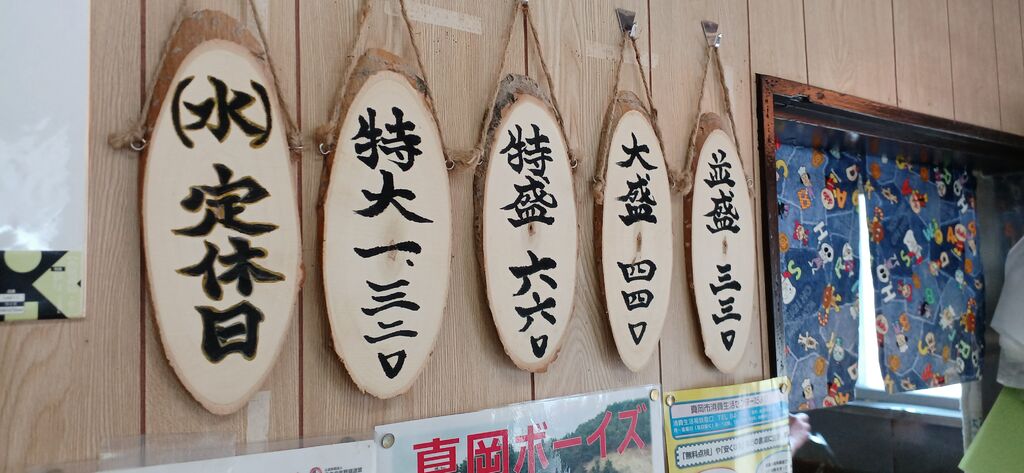 並盛 三三〇
大盛 四四〇
特盛 六六〇
特大 一、三二〇
(水)定休日
真岡ボーイズ
真岡市消費生活セ
「無料点検」や「安く